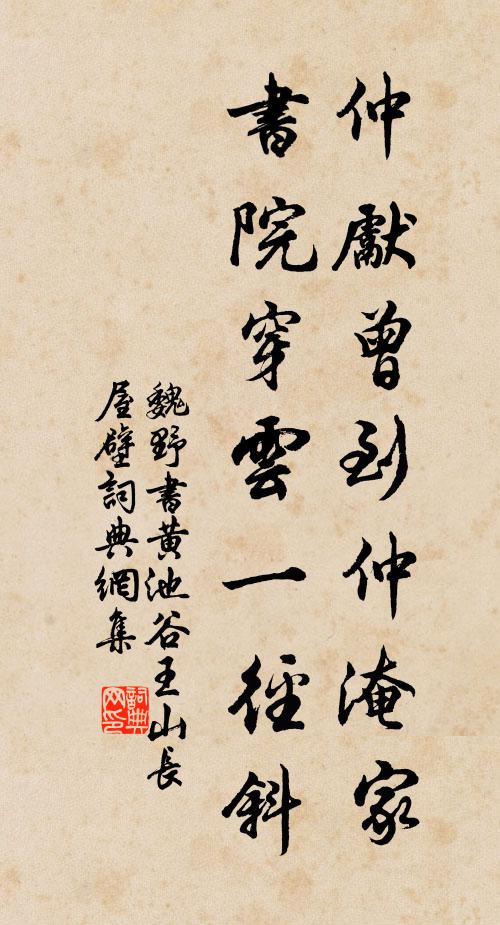 仲獻曾到仲淹家
書院穿雲一徑斜
魏野書黃池谷王山長
屋壁詞典網集
詞典网印